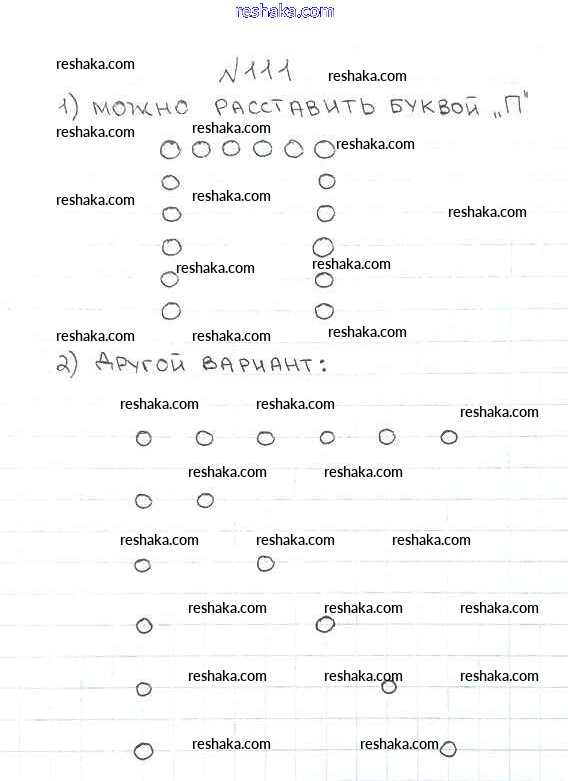 reshaka.com
reshaka.com
№111
reshaka.com
1) МОЖНО РАССТАВИТЬ БУКВОЙ „П"
reshaka.com reshaka.com
reshaka.com
reshaka.com reshaka.com
reshaka.com
reshaka.com reshaka.com
reshaka.com reshaka.com reshaka.com
2) ДРУГОЙ ВАРИАНТ:
reshaka.com reshaka.com reshaka.com
reshaka.com reshaka.com
reshaka.com reshaka.com reshaka.com
reshaka.com reshaka.com reshaka.com
reshaka.com reshaka.com reshaka.com
reshaka.com reshaka.com